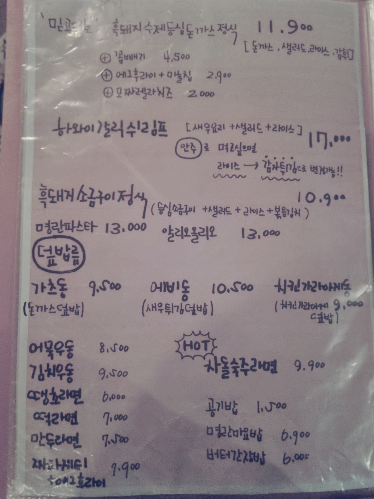 흑돼지 수제등심 돈까스 정식 11.900
[돈까스, 샐러드, 라이스, 감튀]
+ 곱빼기 4,500
+ 에그후라이 + 2.900
+ 모짜렐라치즈 2.000
하와이 갈릭 쉬림프 [새우요리 + 샐러드 + 라이스] 17,000
안주로 먹고싶으면
라이스 → 감자튀김으로 변경가능!!
흑돼지 소금구이 정식 10.900
(등심소금구이 + 샐러드 + 라이스 + 볶음김치)
명란파스타 13,000 알리오올리오 13,000
덮밥류
가츠동 9,500 에비동 10,500 치킨가라아게동 9,000
(돈까스덮밥) (새우튀김덮밥) (치킨가라아게 덮밥)
어묵우동 8,500
김치우동 9,500
땡초라면 6,000
떡라면 7,000
만두라면 7,500
짜파게티 7,900
+ 에그후라이
HOT
차돌숙주라면 9.900
공기밥 1,500
명란마요밥 6,900
버터간장밥 6,000